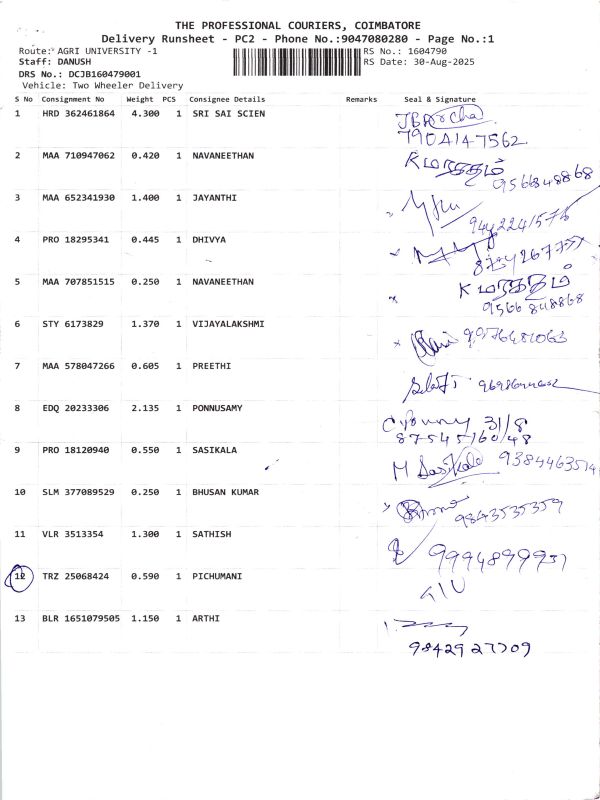 THE PROFESSIONAL COURIERS, COIMBATORE
Delivery Runsheet - PC2 - Phone No.:9047080280 - Page No.:1
Route: AGRI UNIVERSITY -1 RS No.: 1604790
Staff: DANUSH RS Date: 30-Aug-2025
DRS No.: DCJB160479001
Vehicle: Two Wheeler Delivery
S No Consignment No Weight PCS Consignee Details Remarks Seal & Signature
1 HRD 362461864 4.300 1 SRI SAI SCIEN
7904147562
2 MAA 710947062 0.420 1 NAVANEETHAN K மரகதம்
9566848868
3 MAA 652341930 1.400 1 JAYANTHI
4 PRO 18295341 0.445 1 DHIVYA
5 MAA 707851515 0.250 1 NAVANEETHAN K மரகதம்
9566 848868
6 STY 6173829 1.370 1 VIJAYALAKSHMI
7 MAA 578047266 0.605 1 PREETHI
8 EDQ 20233306 2.135 1 PONNUSAMY 31/8
8754516048
9 PRO 18120940 0.550 1 SASIKALA M Sasikala 9384463514
10 SLM 377089529 0.250 1 BHUSAN KUMAR
9843535359
11 VLR 3513354 1.300 1 SATHISH
9994899937
12 TRZ 25068424 0.590 1 PICHUMANI
13 BLR 1651079505 1.150 1 ARTHI
9842927709